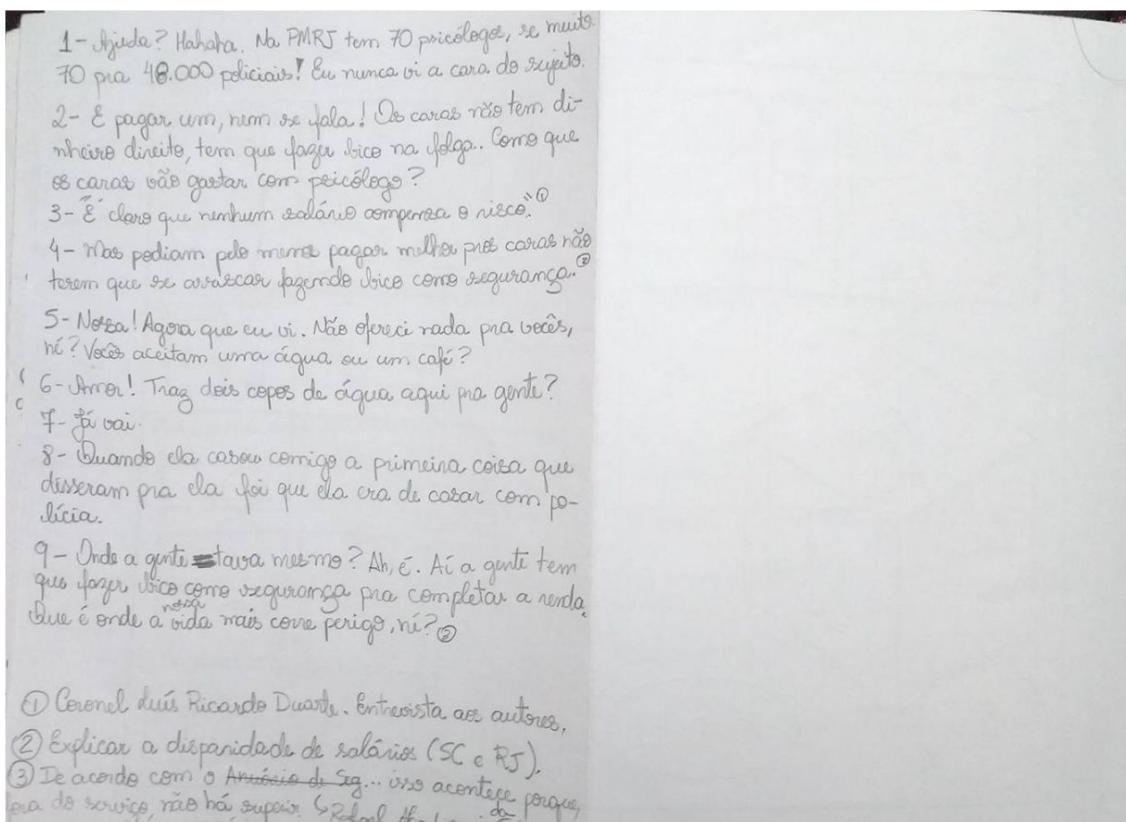 1- Ajuda? Hahaha. Na PMRJ tem 70 psicólogos, se muito.
70 pra 48.000 policiais! Eu nunca vi a cara do sujeito.
2- E pagar um, nem se fala! Os caras não tem di-
nheiro direito, tem que fazer bico na folga.. Como que
os caras vão gastar com psicólogo?
3- "É claro que nenhum salário compensa o risco." ①
4- Mas podiam pelo menos pagar melhor pros caras não
terem que se arriscar fazendo bico como segurança. ②
5- Nossa! Agora que eu vi. Não ofereci nada pra vocês,
né? Vocês aceitam uma água ou um café?
6- Amor! Traz dois copos de água aqui pra gente?
7- Já vai.
8- Quando ela casou comigo a primeira coisa que
disseram pra ela foi que ela era de casar com po-
lícia.
9- Onde a gente tava mesmo? Ah, é. Aí a gente tem
que fazer bico como segurança pra completar a renda.
Que é onde a nossa vida mais corre perigo, né? ②
① Coronel Luís Ricardo Duarte. Entrevista aos autores.
② Explicar a disparidade de salários (SC e RJ).
③ De acordo com o Anuário de Seg... isso acontece porque,
do serviço, não há